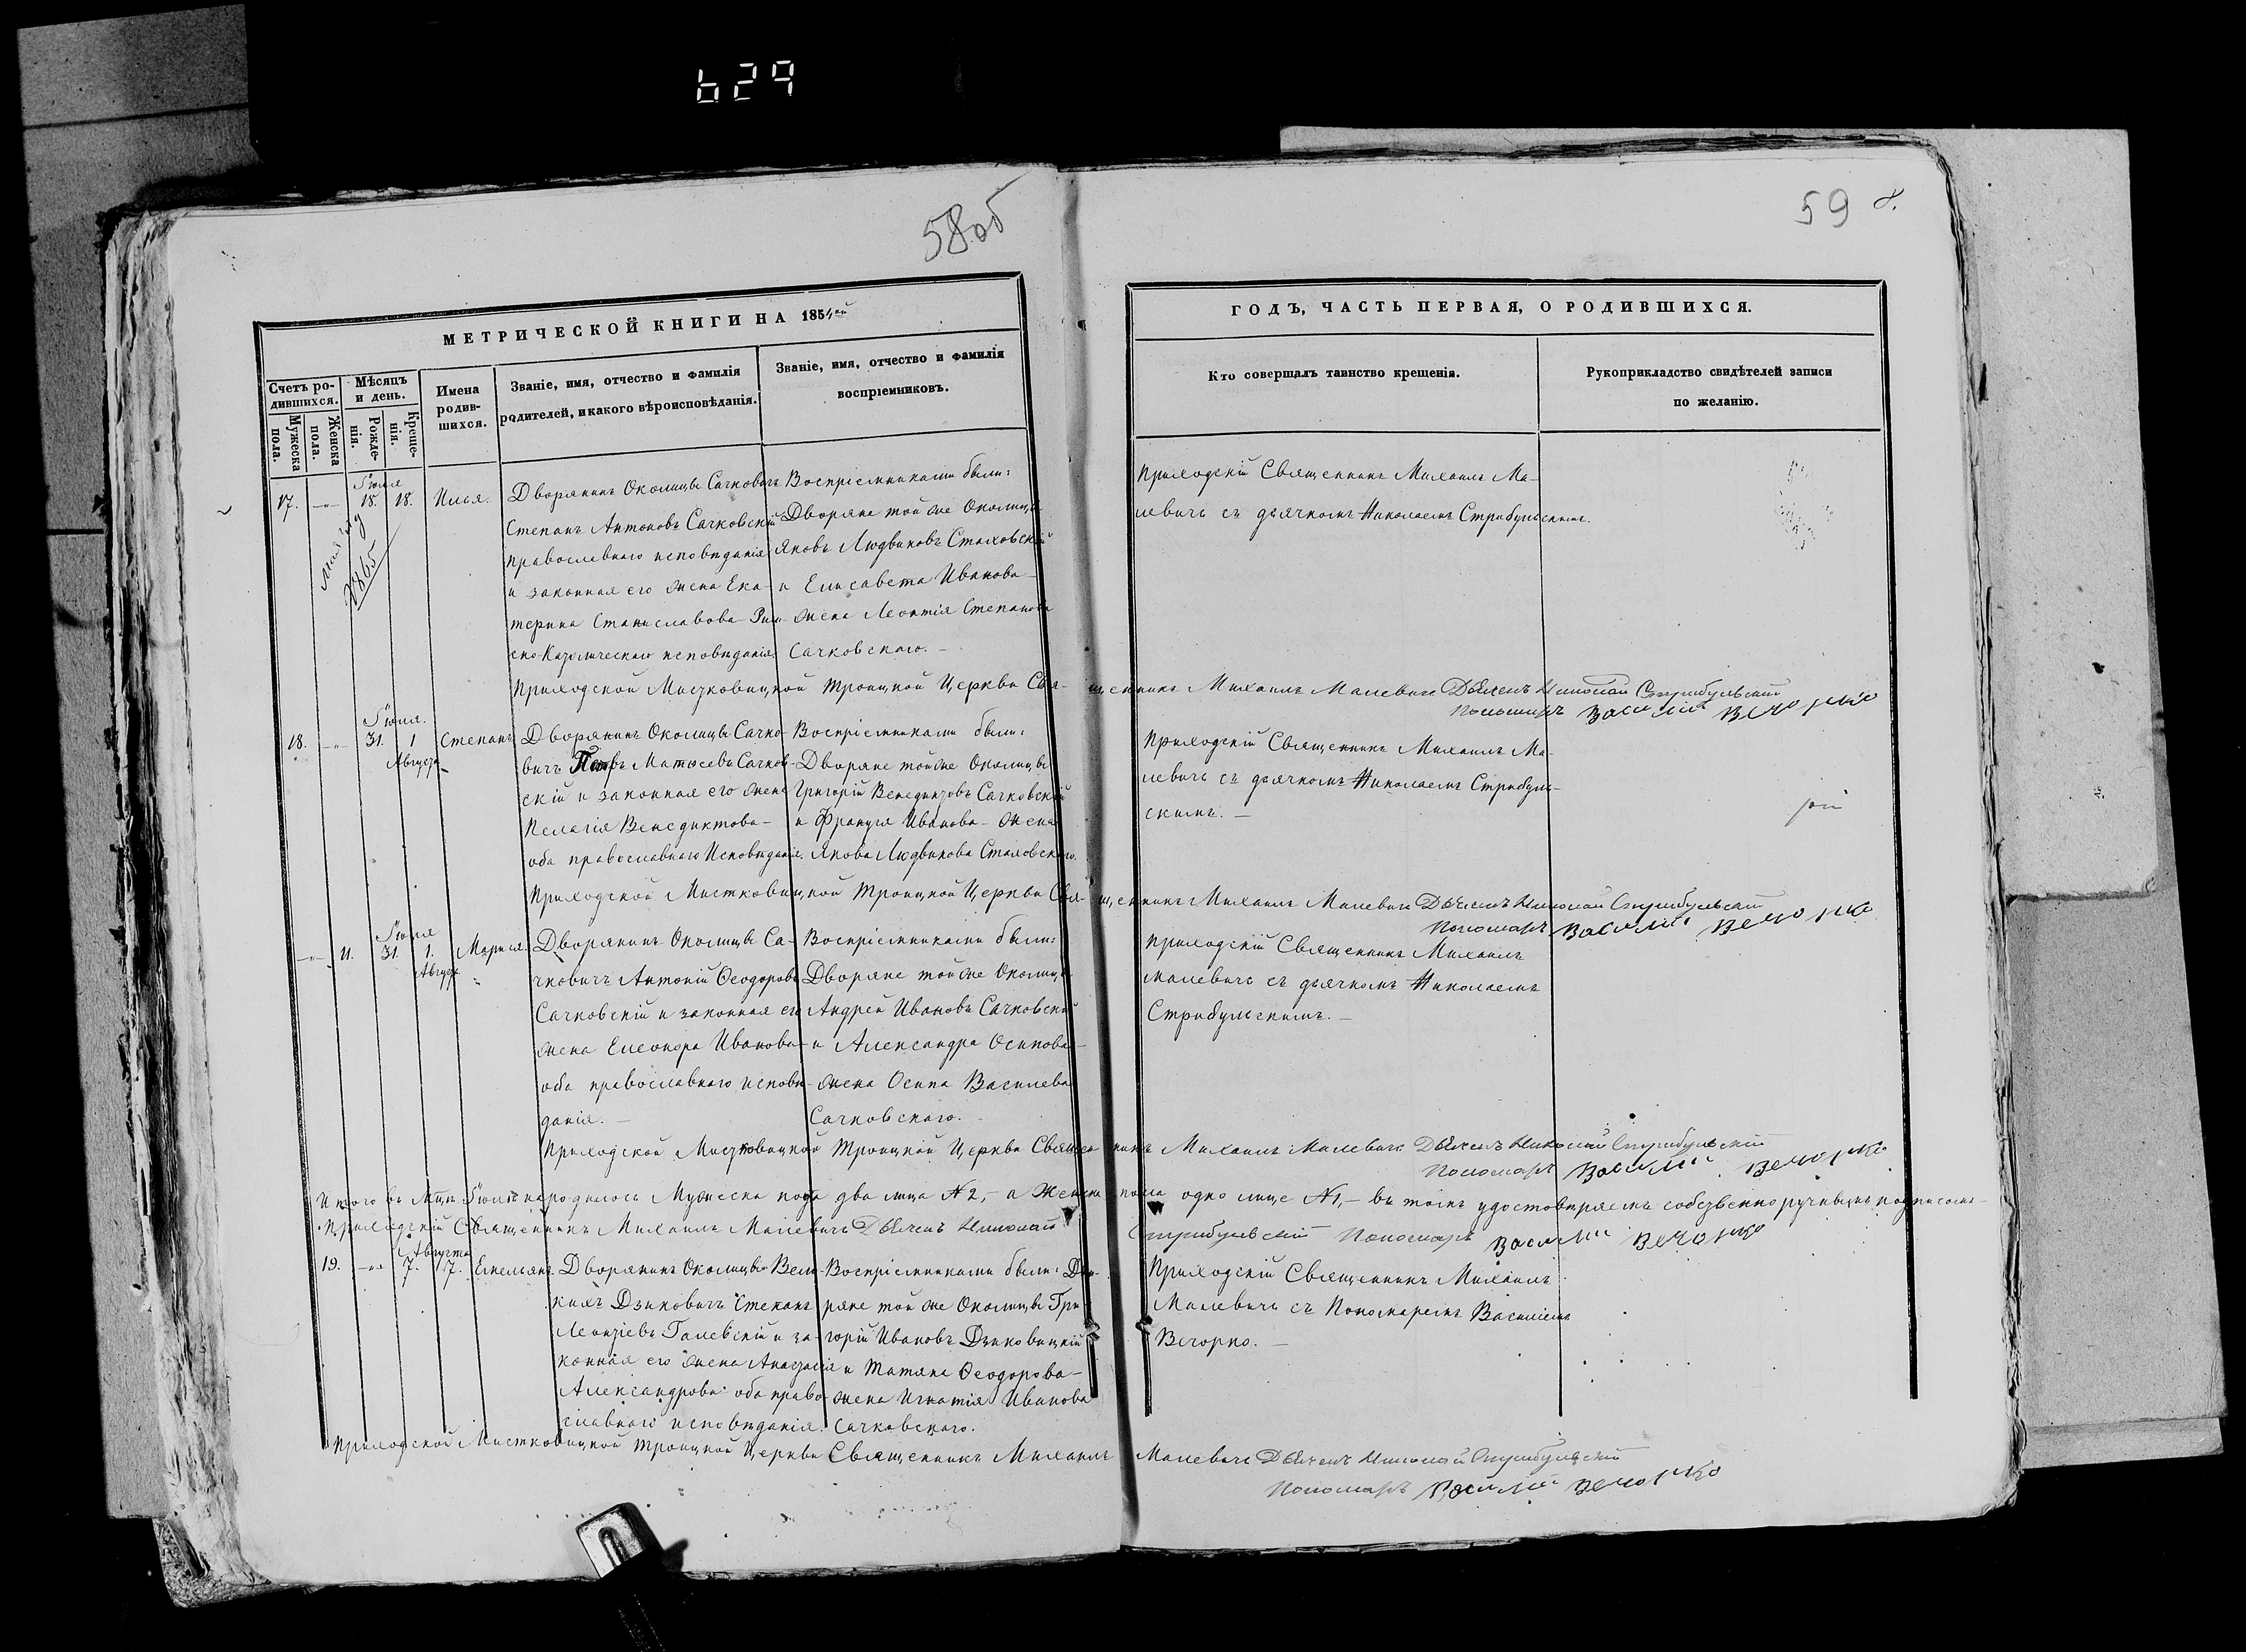 629
58об
59 8.
МЕТРИЧЕСКОЙ КНИГИ НА 1854ый
ГОДЪ, ЧАСТЬ ПЕРВАЯ, О РОДИВШИХСЯ.
Счетъ родившихся.
Мужеска пола.
Женска пола.
Мѣсяцъ и день.
Рожденія.
Крещенія.
Имена родившихся.
Званіе, имя, отчество и фамилія
родителей, и какого вѣроисповѣданія.
Званіе, имя, отчество и фамилія
воспріемниковъ.
Кто совершалъ таинство крещенія.
Рукоприкладство свидѣтелей записи
по желанію.
Іюля
17. 18. 18. Илья.
2865
Дворянинъ Околицы Сачковичъ
Степанъ Антоновъ Сачковскій
православнаго исповѣданія
и законная его жена Ека-
терина Станиславова Рим-
ско-Католическаго исповѣданія.
Воспріемниками были:
Дворяне той же Околицы
Яковъ Людвиковъ Стаховскій
и Елисавета Иванова
жена Леонтія Степанова
Сачковскаго.
Приходскій Священникъ Михаилъ Ма-
левичъ съ дьячкомъ Николаемъ Стрибульскимъ.
Приходской Мистковицкой Троицкой Церкви Священникъ Михаилъ Малевичъ Дьячекъ Николай Стрибульскій
Пономарь Василій Вечорко
Іюля.
18. 31. 1 Августа Степанъ
Дворянинъ Околицы Сачко-
вичъ Матѳеевъ Сачков-
скій и законная его жена
Пелагія Венедиктова
оба православнаго Исповѣданія.
Воспріемниками были:
Дворяне той же Околицы
Григорій Венедиктовъ Сачковскій
и Франція Иванова жена
Якова Людвикова Стаховскаго.
Приходскій Священникъ Михаилъ Ма-
левичъ съ дьячкомъ Николаемъ Стрибуль-
скимъ.
Приходской Мистковицкой Троицкой Церкви Священникъ Михаилъ Малевичъ Дьячекъ Николай Стрибульскій
Пономарь Василій Вечорко
Іюля
11. 31. 1. Августа Марья
Дворянинъ Околицы Са-
чковичъ Антоній Ѳеодоровъ
Сачковскій и законная его
жена Елеонора Иванова
оба православнаго исповѣ-
данія.
Воспріемниками были:
Дворяне той же Околицы
Андрей Ивановъ Сачковскій
и Александра Осипова
жена Осипа Василева
Сачковскаго.
Приходскій Священникъ Михаилъ
Малевичъ съ дьячкомъ Николаемъ
Стрибульскимъ.
Приходской Мистковицкой Троицкой Церкви Священникъ Михаилъ Малевичъ Дьячекъ Николай Стрибульскій
Пономарь Василій Вечорко
Итого въ Мцѣ Іюлѣ народилось Мужеска пола два лица №2,- а Женска пола одно лице №1,- въ томъ удостовѣряемъ собственноручнымъ подписомъ
Приходскій Священникъ Михаилъ Малевичъ Дьячекъ Николай Стрибульскій Пономарь Василій Вечорко
Августа
19. 7. 7. Емельянъ
Дворянинъ Околицы Вели-
кихъ Дзиковичъ Степанъ
Леонтіевъ Галевскій и за-
конная его жена Анастасія
Александрова оба право-
славнаго исповѣданія.
Воспріемниками были: Дво-
ряне той же Околицы Гри-
горій Ивановъ Дзиковицкій
и Татьяна Ѳеодорова
жена Игнатія Иванова
Сачковскаго.
Приходскій Священникъ Михаилъ
Малевичъ съ Пономаремъ Василіемъ
Вечорко.
Приходской Мистковицкой Троицкой Церкви Священникъ Михаилъ Малевичъ Дьячекъ Николай Стрибульскій
Пономарь Василій Вечорко